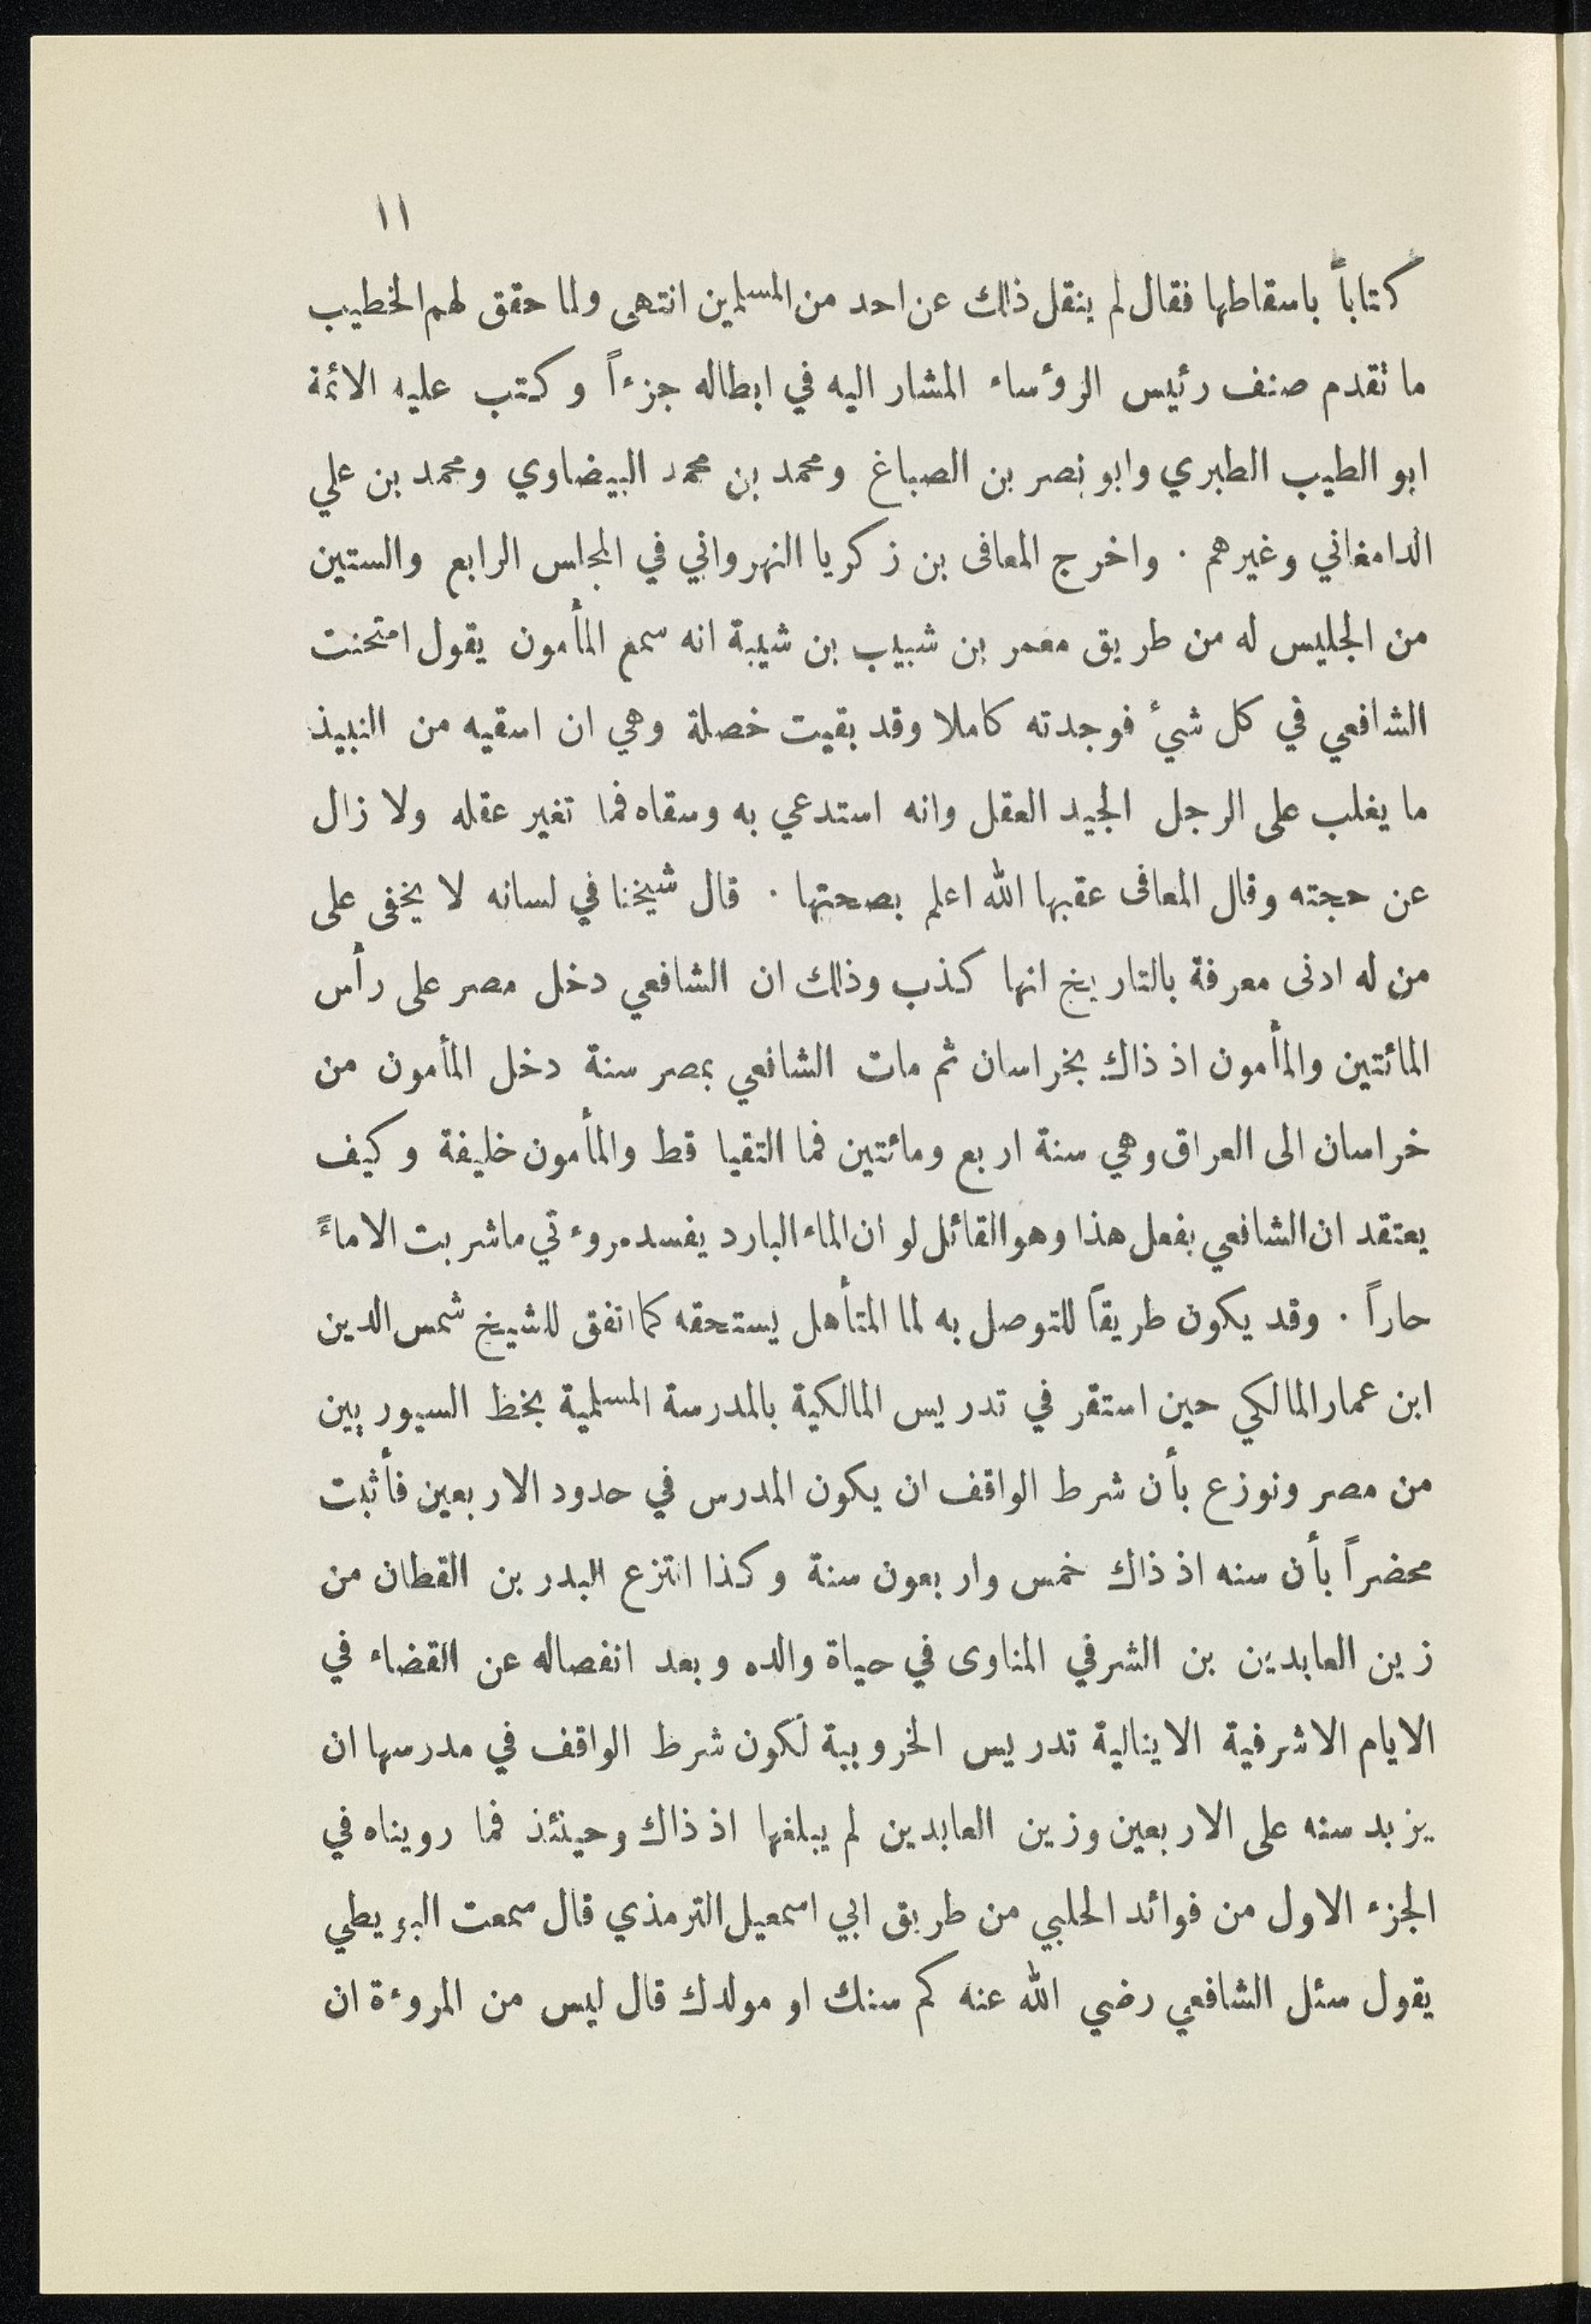 ١١
كتاباً باسقاطها فقال لم ينقل ذلك عن احد من المسلمين انتهى ولما حقق لهم الخطيب
ما تقدم صنف رئيس الرؤساء المشار اليه في ابطاله جزءاً وكتب عليه الائمة
ابو الطيب الطبري وابو نصر بن الصباغ ومحمد بن محمد البيضاوي ومحمد بن علي
الدامغاني وغيرهم . واخرج المعافى بن زكريا النهرواني في المجلس الرابع والستين
من الجليس له من طريق معمر بن شبيب بن شيبة انه سمع المأمون يقول امتحنت
الشافعي في كل شئ فوجدته كاملا وقد بقيت خصلة وهي ان اسقيه من النبيذ
ما يغلب على الرجل الجيد العقل وانه استدعي به وسقاه فما تغير عقله ولا زال
عن حجته وقال المعافى عقبها الله اعلم بصحتها . قال شيخنا في لسانه لا يخفى على
من له ادنى معرفة بالتاريخ انها كذب وذلك ان الشافعي دخل مصر على رأس
المائتين والمأمون اذ ذاك بخراسان ثم مات الشافعي بمصر سنة دخل المأمون من
خراسان الى العراق وهي سنة اربع ومائتين فما التقيا قط والمأمون خليفة وكيف
يعتقد ان الشافعي يفعل هذا وهو القائل لو ان الماء البارد يفسد مروءتي ما شربت الا ماءً
حاراً . وقد يكون طريقاً للتوصل به لما المتأهل يستحقه كما اتفق للشيخ شمس الدين
ابن عمار المالكي حين استقر في تدريس المالكية بالمدرسة المسلمية بخط السيوريين
من مصر ونوزع بأن شرط الواقف ان يكون المدرس في حدود الاربعين فأثبت
محضراً بأن سنه اذ ذاك خمس واربعون سنة وكذا انتزع البدر بن القطان من
زين العابدين بن الشرفي المناوى في حياة والده وبعد انفصاله عن القضاء في
الايام الاشرفية الاينالية تدريس الخروبية لكون شرط الواقف في مدرسها ان
يزيد سنه على الاربعين وزين العابدين لم يبلغها اذ ذاك وحينئذ فما رويناه في
الجزء الاول من فوائد الحلبي من طريق ابي اسمعيل الترمذي قال سمعت البويطي
يقول سئل الشافعي رضي الله عنه كم سنك او مولدك قال ليس من المروءة ان